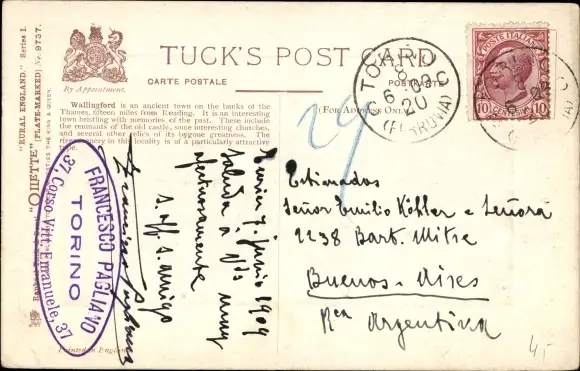 "RURAL ENGLAND." Series I.
"OILETTE" [PLATE-MARKED] No. 9737.
By Appointment.
TUCK'S POST CARD
CARTE POSTALE
POSTKARTE
(FOR ADDRESS ONLY)
Wallingford is an ancient town on the banks of the
Thames, fifteen miles from Reading. It is an interesting
town bristling with memories of the past. These include
the remnants of the old castle, some interesting churches,
and several other relics of its bygone greatness. The
river scenery in this locality is of a particularly attractive
type.
POSTE ITALIANE
10 CENTESIMI 10
TORINO
20
(FERROVIA)
FRANCESCO PAGLIANO
TORINO
37, Corso Vitt. Emanuele, 37
Torino 7. junio 1909
Saluda a Vds muy
afectuosamente
s. aff. s. amigo
Francisco Pagliano
Estimados
Señor Emilio Köhler e Señora
1238 Bart. Mitre
Buenos-Aires
Rca Argentina
Printed in England